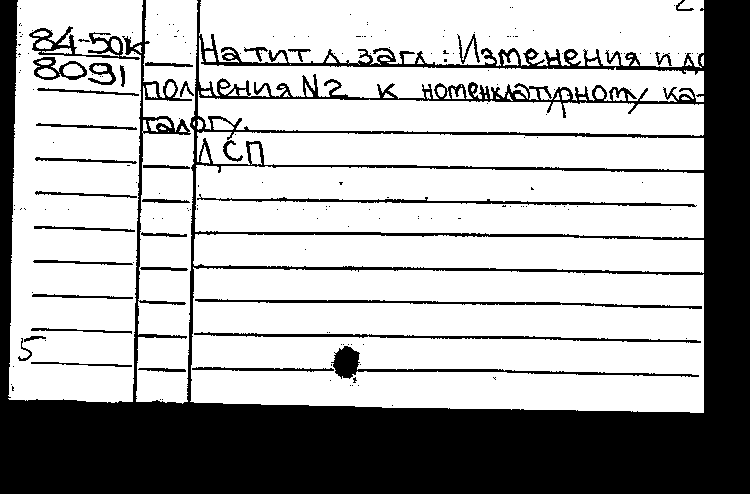 2.
84-50к На тит. л. загл.: Изменения и до
8091 полнения N2 к номенклатурному ка-
талогу.
ДСП
5